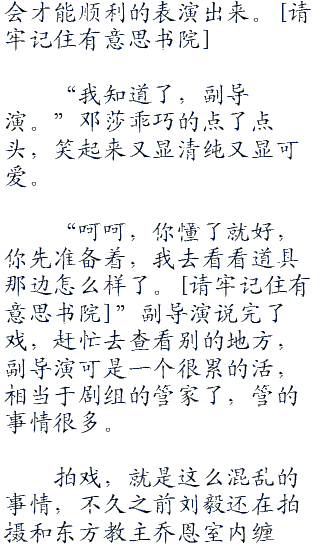 会才能顺利的表演出来。[请
牢记住有意思书院]
“我知道了，副导
演。”邓莎乖巧的点了点
头，笑起来又显清纯又显可
爱。
“呵呵，你懂了就好，
你先准备着，我去看看道具
那边怎么样了。[请牢记住有
意思书院]”副导演说完了
戏，赶忙去查看别的地方，
副导演可是一个很累的活，
相当于剧组的管家了，管的
事情很多。
拍戏，就是这么混乱的
事情，不久之前刘毅还在拍
摄和东方教主乔恩室内缠